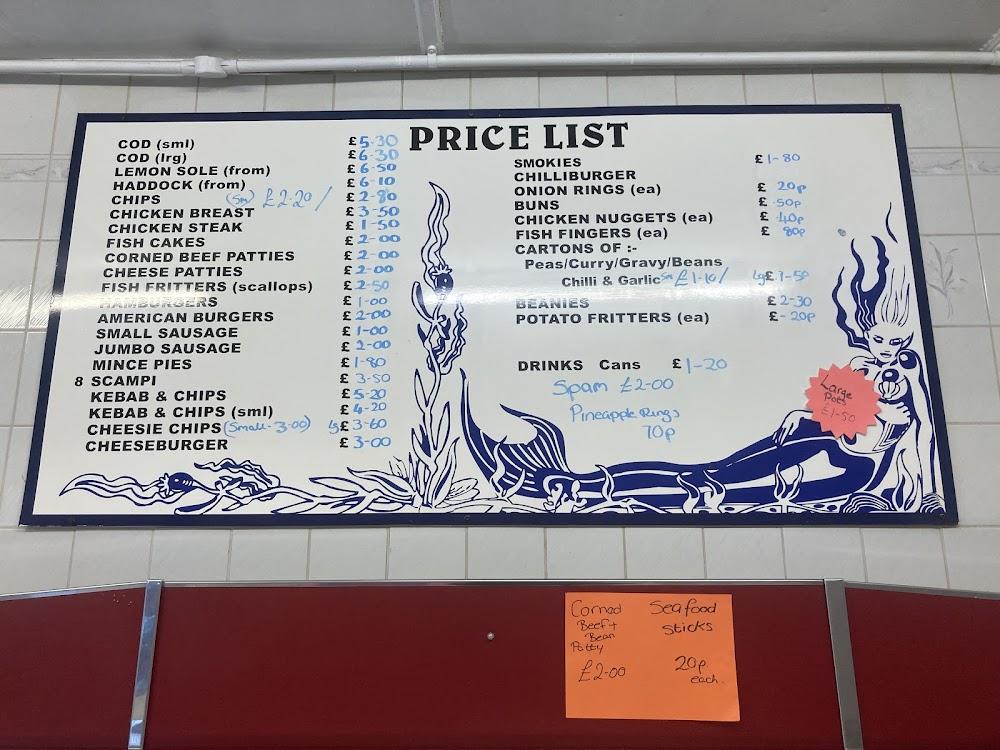 PRICE LIST
COD (sml) £5-30
COD (lrg) £6-30
LEMON SOLE (from) £6-50
HADDOCK (from) £6-10
CHIPS (Sm) £2-20 / £2-80
CHICKEN BREAST £3-50
CHICKEN STEAK £1-50
FISH CAKES £2-00
CORNED BEEF PATTIES £2-00
CHEESE PATTIES £2-00
FISH FRITTERS (scallops) £2-50
HAMBURGERS £1-00
AMERICAN BURGERS £2-00
SMALL SAUSAGE £1-00
JUMBO SAUSAGE £2-00
MINCE PIES £1-80
8 SCAMPI £3-50
KEBAB & CHIPS £5-20
KEBAB & CHIPS (sml) £4-20
CHEESIE CHIPS (Small-3-00) lg £3-60
CHEESEBURGER £3-00
SMOKIES £1-80
CHILLIBURGER
ONION RINGS (ea) £ 20p
BUNS £ 50p
CHICKEN NUGGETS (ea) £ 40p
FISH FINGERS (ea) £ 80p
CARTONS OF :-
Peas/Curry/Gravy/Beans
Chilli & Garlic Sm £1-10/ lg £1-50
BEANIES £2-30
POTATO FRITTERS (ea) £-20p
DRINKS Cans £1-20
Spam £2-00
Pineapple Rings
70p
Large
£1-50
Corned
Beef +
Bean
Patty
£2-00
Seafood
sticks
20p
each